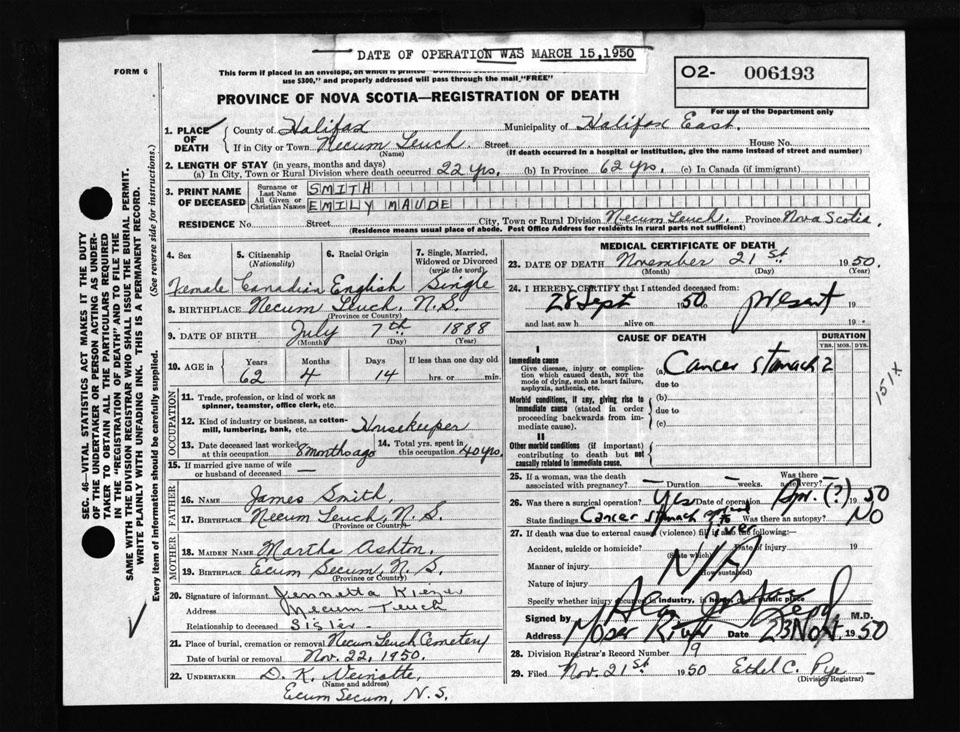 DATE OF OPERATION WAS MARCH 15, 1950
FORM 6
This form if placed in an envelope, on which is printed
use $300," and properly addressed will pass through the mail "FREE"
O2- 006193
For use of the Department only
PROVINCE OF NOVA SCOTIA—REGISTRATION OF DEATH
SEC. 46—VITAL STATISTICS ACT MAKES IT THE DUTY
OF THE UNDERTAKER OR PERSON ACTING AS UNDER-
TAKER TO OBTAIN ALL THE PARTICULARS REQUIRED
IN THE "REGISTRATION OF DEATH" AND TO FILE THE
SAME WITH THE DIVISION REGISTRAR WHO SHALL ISSUE THE BURIAL PERMIT.
WRITE PLAINLY WITH UNFADING INK. THIS IS A PERMANENT RECORD.
Every item of information should be carefully supplied. (See reverse side for instructions.)
1. PLACE OF DEATH
County of Halifax Municipality of Halifax East.
If in City or Town Necum Teuch Street House No.
(Name) (If death occurred in a hospital or institution, give the name instead of street and number)
2. LENGTH OF STAY (in years, months and days)
(a) In City, Town or Rural Division where death occurred 22 yrs. (b) In Province 62 yrs. (c) In Canada (if immigrant)
3. PRINT NAME OF DECEASED
Surname or Last Name SMITH
All Given or Christian Names EMILY MAUDE
RESIDENCE No. Street City, Town or Rural Division Necum Teuch. Province Nova Scotia
(Residence means usual place of abode. Post Office Address for residents in rural parts not sufficient)
4. Sex 5. Citizenship (Nationality) 6. Racial Origin 7. Single, Married, Widowed or Divorced (write the word)
Female Canadian English Single
8. BIRTHPLACE Necum Teuch, N.S.
(Province or Country)
9. DATE OF BIRTH July 7th 1888
(Month) (Day) (Year)
10. AGE in Years Months Days If less than one day old
62 4 14 hrs. or min.
OCCUPATION
11. Trade, profession, or kind of work as
spinner, teamster, office clerk, etc.
12. Kind of industry or business, as cotton-
mill, lumbering, bank, etc. Housekeeper
13. Date deceased last worked at this occupation 8 months ago 14. Total yrs. spent in this occupation 40 yrs.
15. If married give name of wife
or husband of deceased —
FATHER
16. NAME James Smith,
17. BIRTHPLACE Necum Teuch, N.S.
(Province or Country)
MOTHER
18. MAIDEN NAME Martha Ashton,
19. BIRTHPLACE Ecum Secum, N.S.
(Province or Country)
20. Signature of informant Jennetta
Address Necum Teuch
Relationship to deceased Sister
21. Place of burial, cremation or removal Necum Teuch Cemetery
Date of burial or removal Nov. 22, 1950.
22. UNDERTAKER D. K.
(Name and address)
Ecum Secum, N.S.
MEDICAL CERTIFICATE OF DEATH
23. DATE OF DEATH November 21st 1950
(Month) (Day) (Year)
24. I HEREBY CERTIFY that I attended deceased from:
28 Sept 1950 to present 19
and last saw h alive on 19
CAUSE OF DEATH DURATION
YRS. MOS. DYS.
I
Immediate cause
Give disease, injury or complica-
tion which caused death, not the
mode of dying, such as heart failure,
asphyxia, asthenia, etc.
(a) Cancer stomach 2
due to
Morbid conditions, if any, giving rise to
immediate cause (stated in order
proceeding backwards from im-
mediate cause).
(b)
due to
(c)
II
Other morbid conditions (if important)
contributing to death but not
causally related to immediate cause.
151X
25. If a woman, was the death
associated with pregnancy? — Duration — weeks. Was there a delivery?
26. Was there a surgical operation? Yes Date of operation Apr. (?) 1950
State findings Cancer stomach spread to liver Was there an autopsy? NO
27. If death was due to external cause (violence) fill in also the following:—
Accident, suicide or homicide? (State which) Date of injury 19
Manner of injury N/A
(How sustained)
Nature of injury
Specify whether injury occurred in industry, in home, or in public place
Signed by M.D.
Address Moser River Date 23 Nov 1950
28. Division Registrar's Record Number 19
29. Filed Nov. 21st 1950 Ethel C. Pye
(Division Registrar)